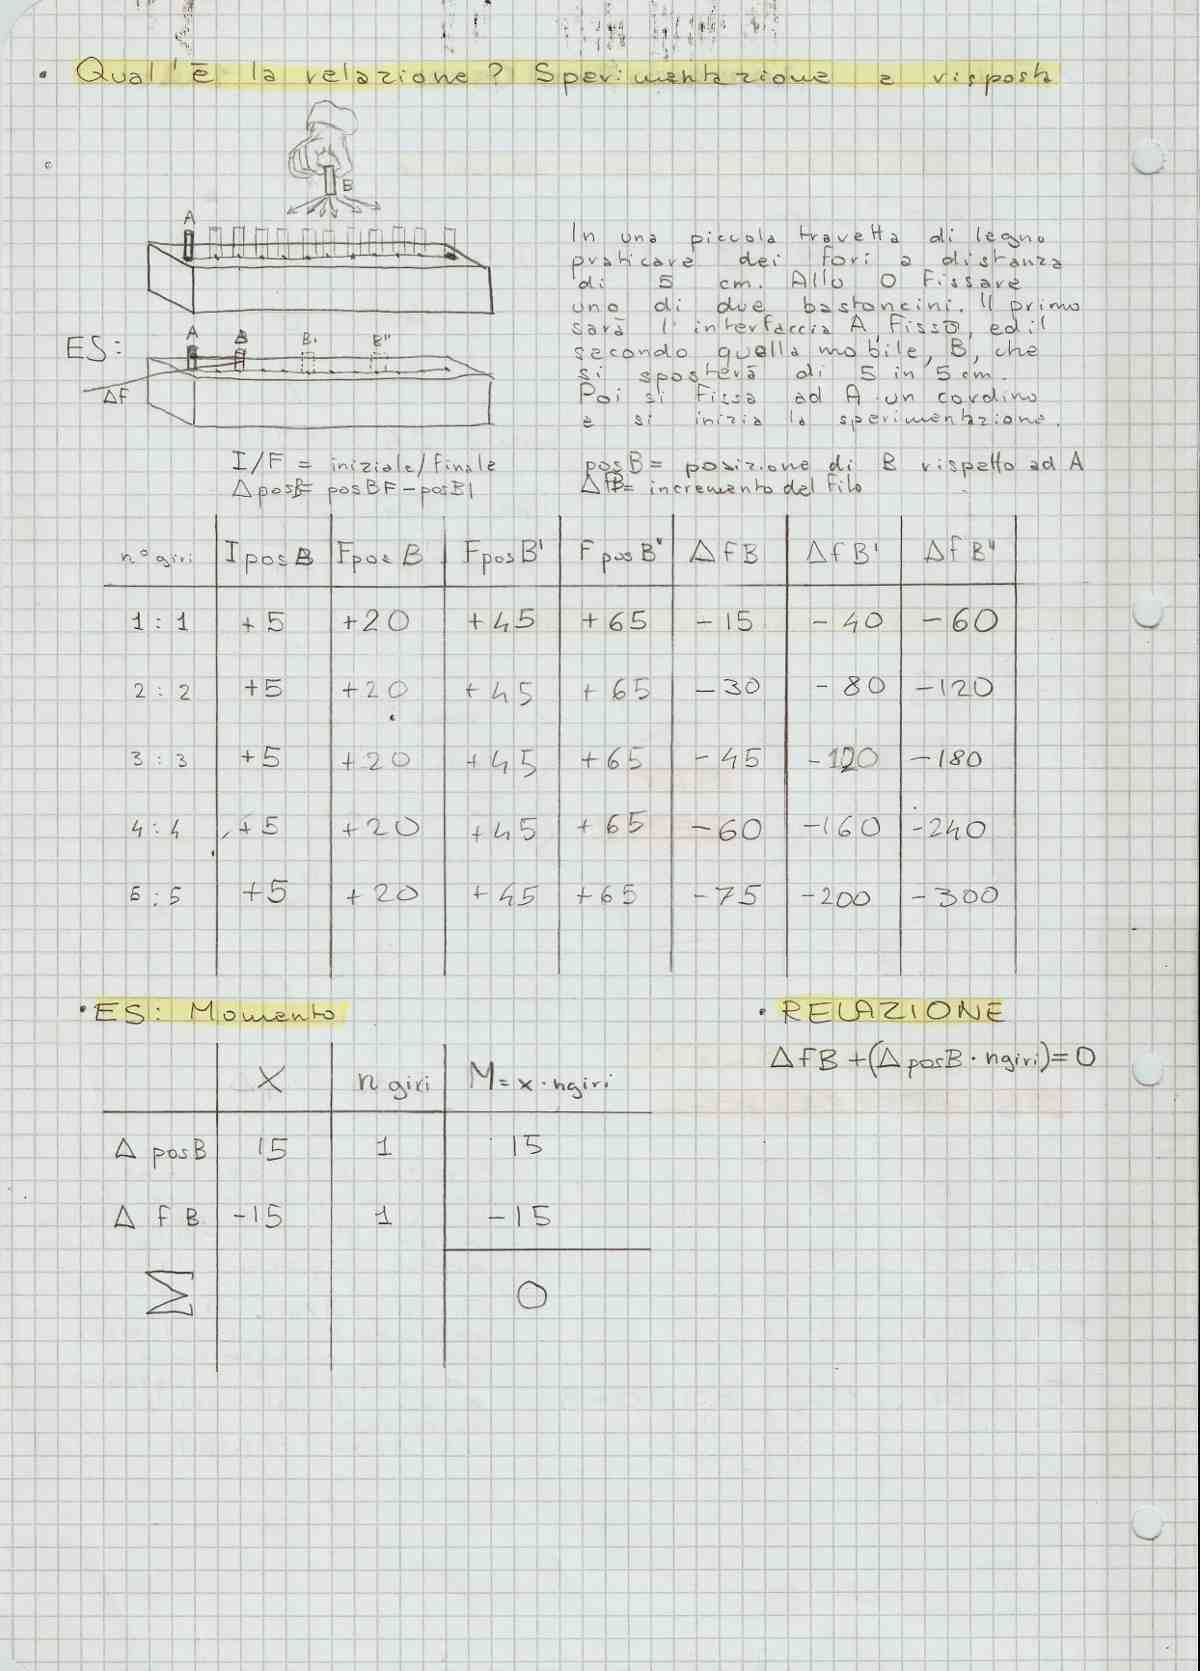 • Qual'è la relazione? Sperimentazione e risposta
B
A
In una piccola travetta di legno
praticare dei fori a distanza
di 5 cm. Allo 0 fissare
uno di due bastoncini. Il primo
sarà l'interfaccia A, fisso, ed il
secondo quella mobile, B, che
si sposterà di 5 in 5 cm.
Poi si fissa ad A un cordino
e si inizia la sperimentazione.
ES:
A B B' B"
ΔF
I/F = iniziale/finale
posB = posizione di B rispetto ad A
ΔposB= posBF-posBI
ΔfB= incremento del filo
n° giri IposB FposB FposB' FposB" ΔfB ΔfB' ΔfB"
1:1 +5 +20 +45 +65 -15 -40 -60
2:2 +5 +20 +45 +65 -30 -80 -120
3:3 +5 +20 +45 +65 -45 -120 -180
4:4 +5 +20 +45 +65 -60 -160 -240
5:5 +5 +20 +45 +65 -75 -200 -300
• ES: Momento
X n giri M=x·ngiri
Δ posB 15 1 15
Δ fB -15 1 -15
Σ 0
• RELAZIONE
ΔfB+(ΔposB·ngiri)=0